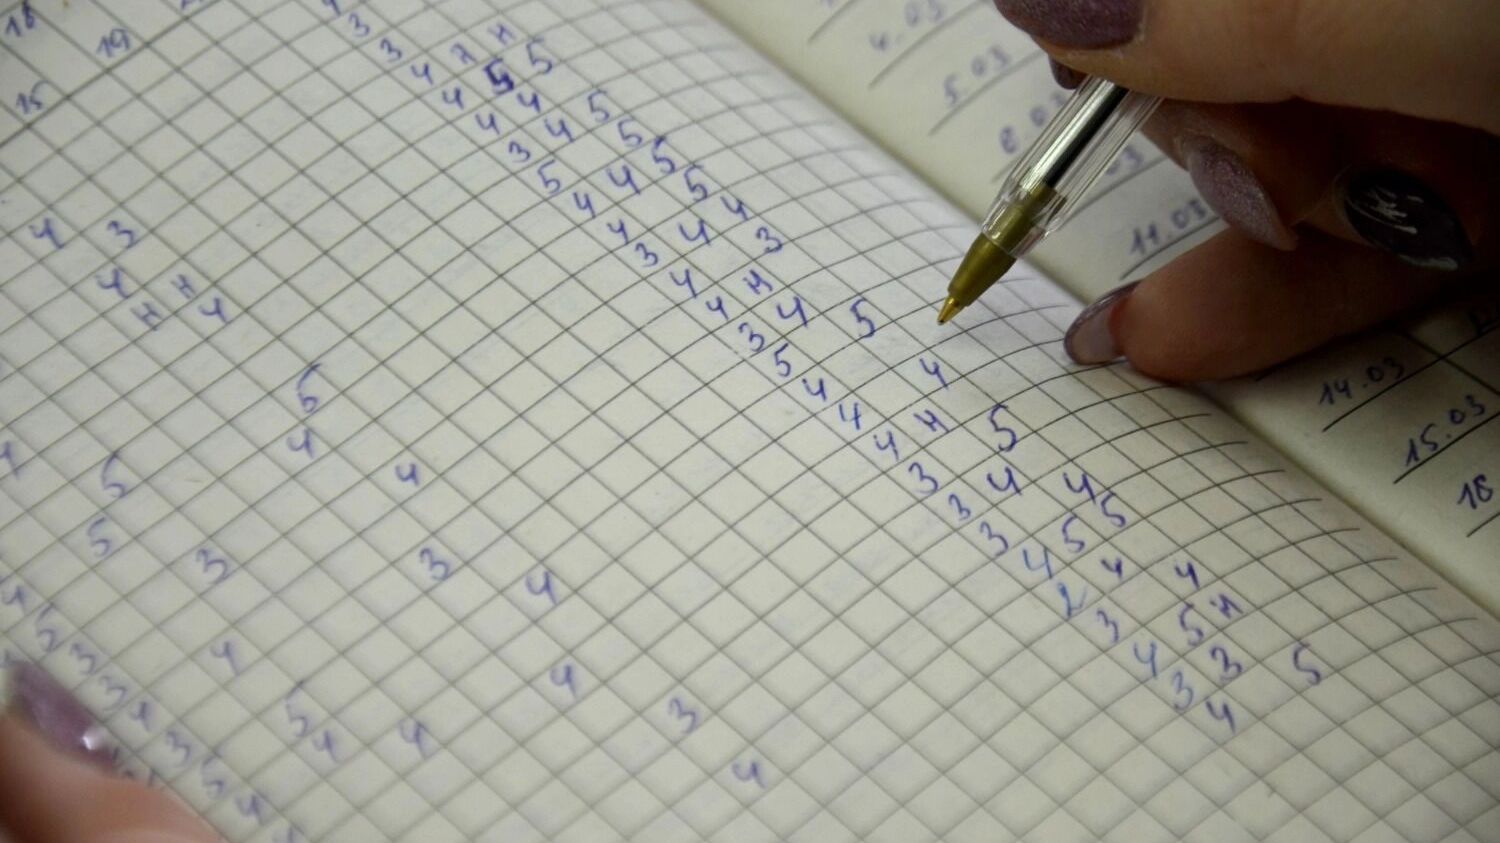 18 19
15
3
3
4 н н
4 5 5
4 4 5
3 4 5
5 4 5
4 5
4 4 4
3 3
4 н
4 4 5
3
5 4
4
4 н 5
4
3 4 4
3 5 5
3 4 4
4 5 н
2
3 3 5
4
3
4
4 3
4 н
н 4
5
4 4
5
5 3 3 4
4 4
5 3
4 4
4
5 3 3 4 3 5 4
4.03
5.03
11.03
14.03
15.03
18